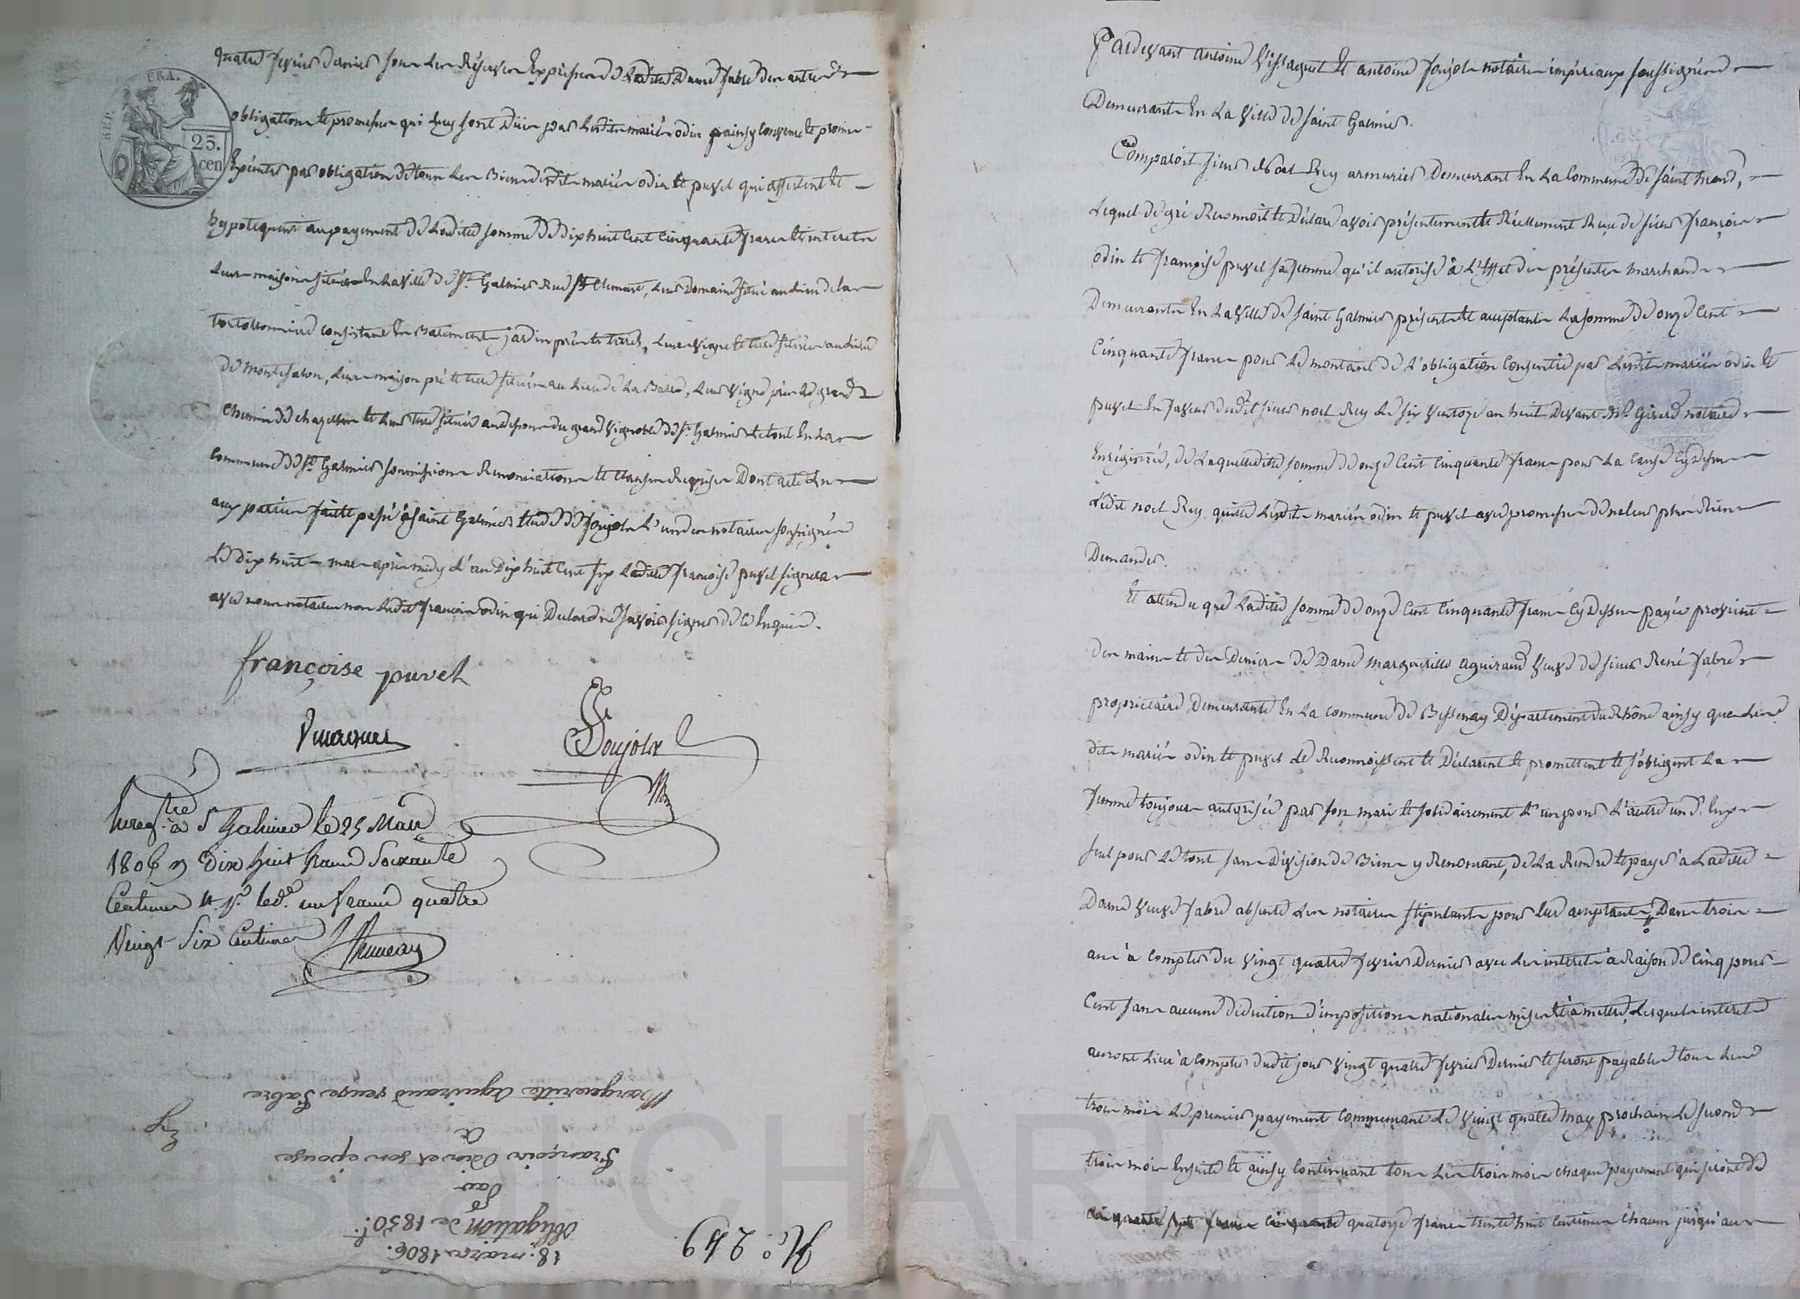 Pardevant antoine Vissaguet et antoine Poujols notaires impériaux soussignés
Demeurants En La Ville de Saint Galmier.
Comparoit sieur Noel Rey armurier Demeurant En La Commune de Saint
Lequel de gré Reconnoit et Déclare avoir présentement et Réellement Reçu de sieur françois
odin et françoise puvel sa femme qu'il autorise à L'Effet des présentes marchands
Demeurants En La Ville de Saint Galmier présents et acceptants La somme de onze Cent
Cinquante francs pour Le montant de L'obligation Consentie par Lesdits mariés odin et
puvel En faveur dudit sieur noel Rey Le six ventose an huit Devant Me Girard notaire
Enrégistrée, de Laquelle dite somme de onze Cent Cinquante francs pour La Cause Cy Dessus
Ledit noel Rey quitte Lesdits mariés odin et puvel avec promesse de ne leur plus Rien
Demander.
Et attendu que Ladite somme de onze Cent Cinquante francs Cy Dessus payée provient
des mains et des Deniers de Dame marguerite aguiraud Veuve de sieur René fabre
propriétaire Demeurante En La commune de Bessenay Département du Rhône ainsy que Les
dits mariés odin et puvel Le Reconnoissent et Déclarent et promettent et s'obligent La
femme toujours autorisée par son mari et solidairement L'un pour L'autre un d'Eux
seul pour Le tout sans Division de Biens y Renonçant, de La Rendre et payer à Ladite
Dame Veuve fabre absente Les notaires stipulants pour Elle acceptants, Dans trois
ans à Compter du Vingt quatre fevrier Dernier avec Les interets à Raison de Cinq pour
Cent sans aucune déduction d'impositions nationales mises et à mettre, Lesquels interets
auront Lieu à Compter dudit jour Vingt quatre fevrier Dernier et seront payables tous Les
trois mois Le premier payement Commençant Le Vingt quatre may prochain Le second
trois mois Ensuite et ainsy Continuant tous Les trois mois chaque payement qui seront de
quatorze francs trente huit Centimes chacun jusqu'au
quatre fevrier dernier sous Les Réserves Expresses de Ladite Dame fabre des autres
obligations et promesses qui Luy sont Dues par Lesdits mariés odin ainsy Convenu et promis
Exécuter par obligation de tous Les Biens desdits mariés odin et puvel qui affectent et
hypotequent au payement de Ladite somme de dix huit Cent Cinquante francs et interets
Leurs maisons situées En La Ville de St Galmier Rue St Clement, Leur Domaine situé au Lieu de La
consistant En Batiments, jardin près et terres, Leur vigne et terre située au lieu
de montchalon, Leur maison pré et terre située au Lieu de La Barre, Leur Vigne près Le grand
Chemin de chazelles et Leur terre située au dessous du grand Vignoble de St Galmier et le tout En La
commune de St Galmier soumissions Renonciations et Clauses Requises Dont acte Lu
aux parties faitte passé à Saint Galmier Etude de Poujols L'un des notaires soussignés
Le dix huit mars après midy L'an Dix huit Cent six Ladite françoise puvel signera
avec nous notaires non Ledit françois odin qui a Declaré ne savoir signer de ce Enquis.
françoise puvel
Vissaguet
Poujols
Enregtré à St Galmier le 25 Mars
1806 Dix huit francs Soixante
Centimes un franc quatre
Vingt Six Centimes
No. 249
18. mars 1806.
obligation de 1850 f.
par
françois Odin et son épouse
a
Marguerite Aguiraud veuve Fabre
REP. FRA.
25.
cen
CHAREYRON